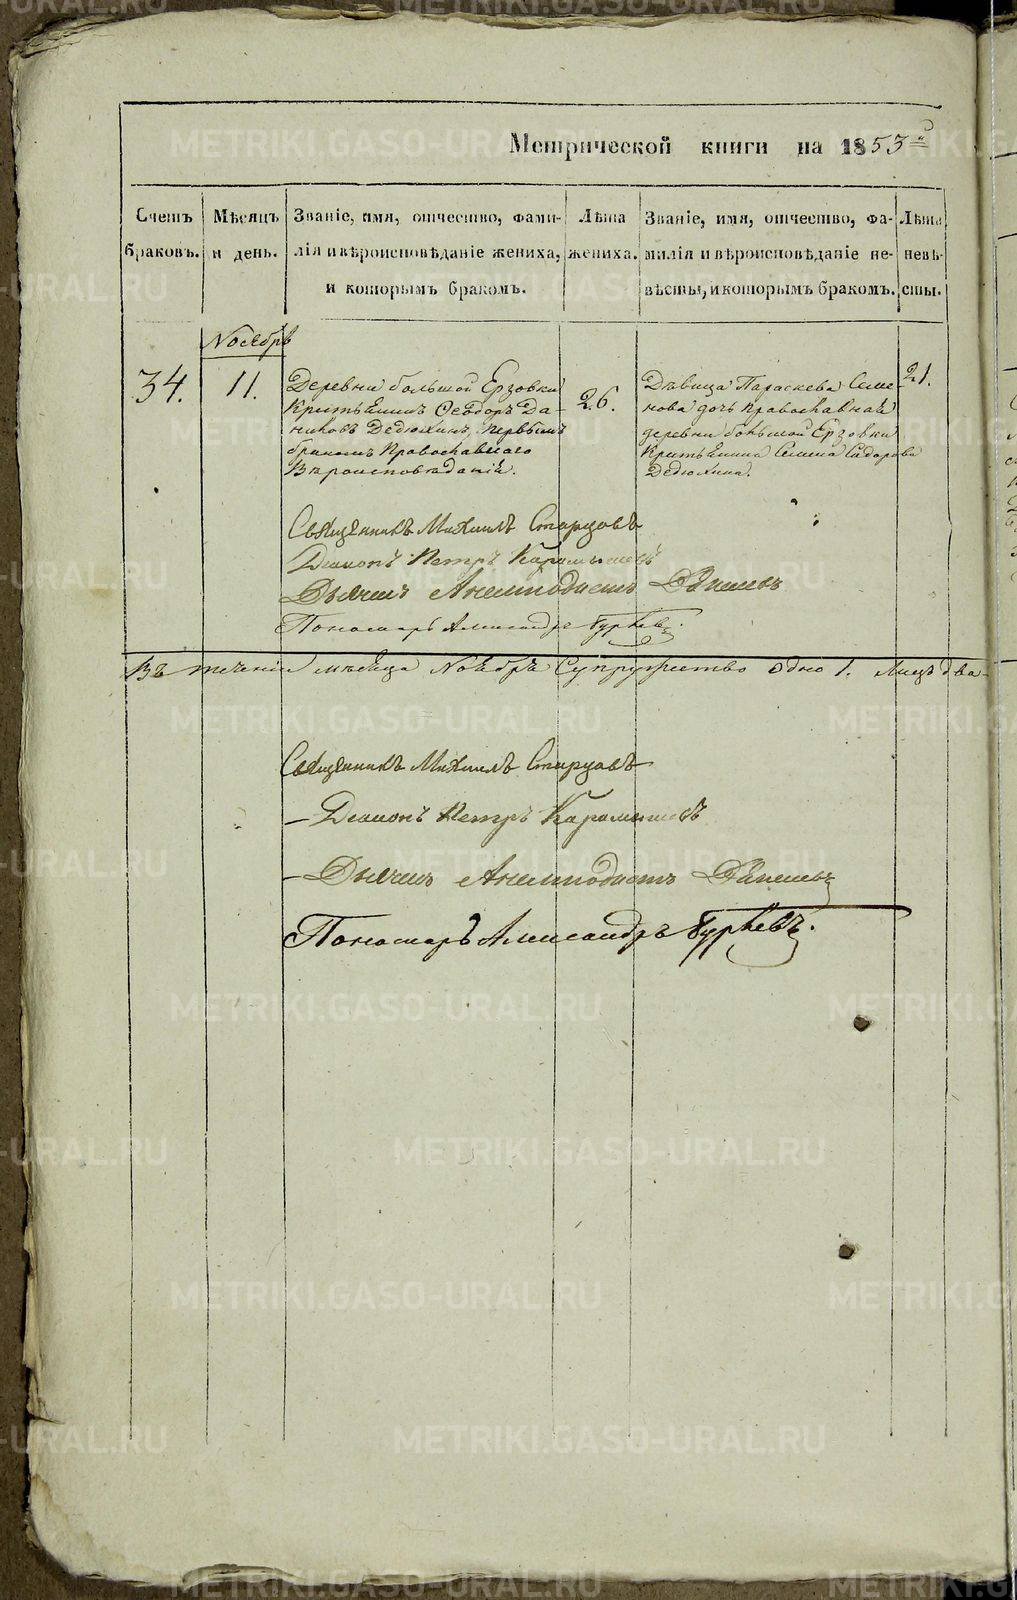 Метрической книги на 1853й
Счетъ браковъ.
Мѣсяцъ и день.
Званіе, имя, отчество, фами-
лія и вѣроисповѣданіе жениха,
и которымъ бракомъ.
Лѣта
жениха.
Званіе, имя, отчество, фа-
милія и вѣроисповѣданіе не-
вѣсты, и которымъ бракомъ.
Лѣта
невѣ-
сты.
Ноябрь
34.
11.
Деревни большой Ерзовки
Крестьянинъ Ѳеодоръ Да-
ниловъ Дедюхинъ, первымъ
бракомъ Православнаго
Вѣроисповѣданія.
26.
Дѣвица Параскева Семе-
нова дочь православная
деревни большой Ерзовки
Крестьянина Семена Сидорова
Дедюхина.
21.
Священникъ Михаилъ Старцовъ
Діаконъ Петръ Карамышевъ
Дьячекъ Анемподистъ
Пономарь Александръ
Въ теченіи мѣсяца Ноября Супружество одно 1. Лицъ два
Священникъ Михаилъ Старцовъ
Діаконъ Петръ Карамышевъ
Дьячекъ Анемподистъ
Пономарь Александръ
METRIKI.GASO-URAL.RU